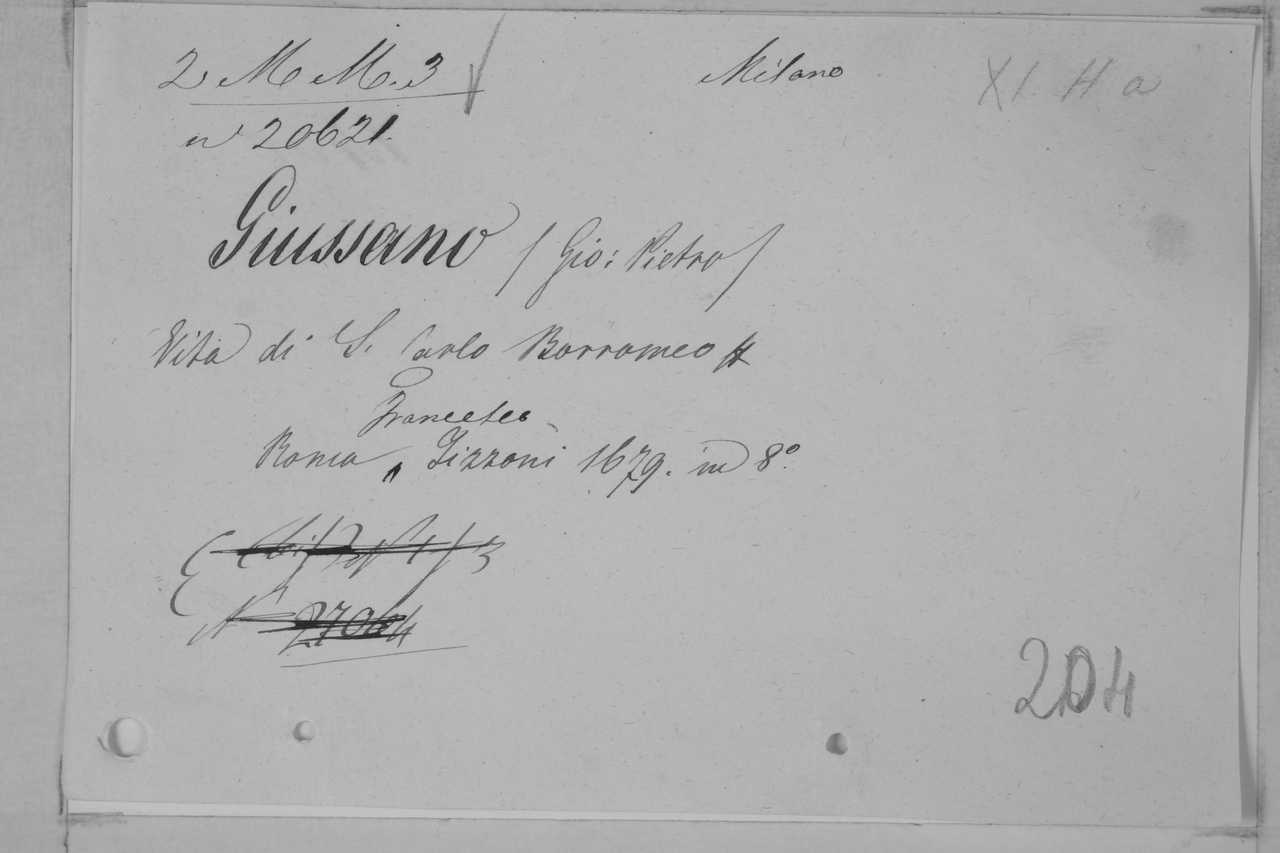 2 M M. 3 Milano XI H a
n° 20621.
Giussano (Gio: Pietro)
Vita di S. Carlo Borromeo
Francesco
Roma, Tizzoni 1679. in 8°.
N° 27064
204